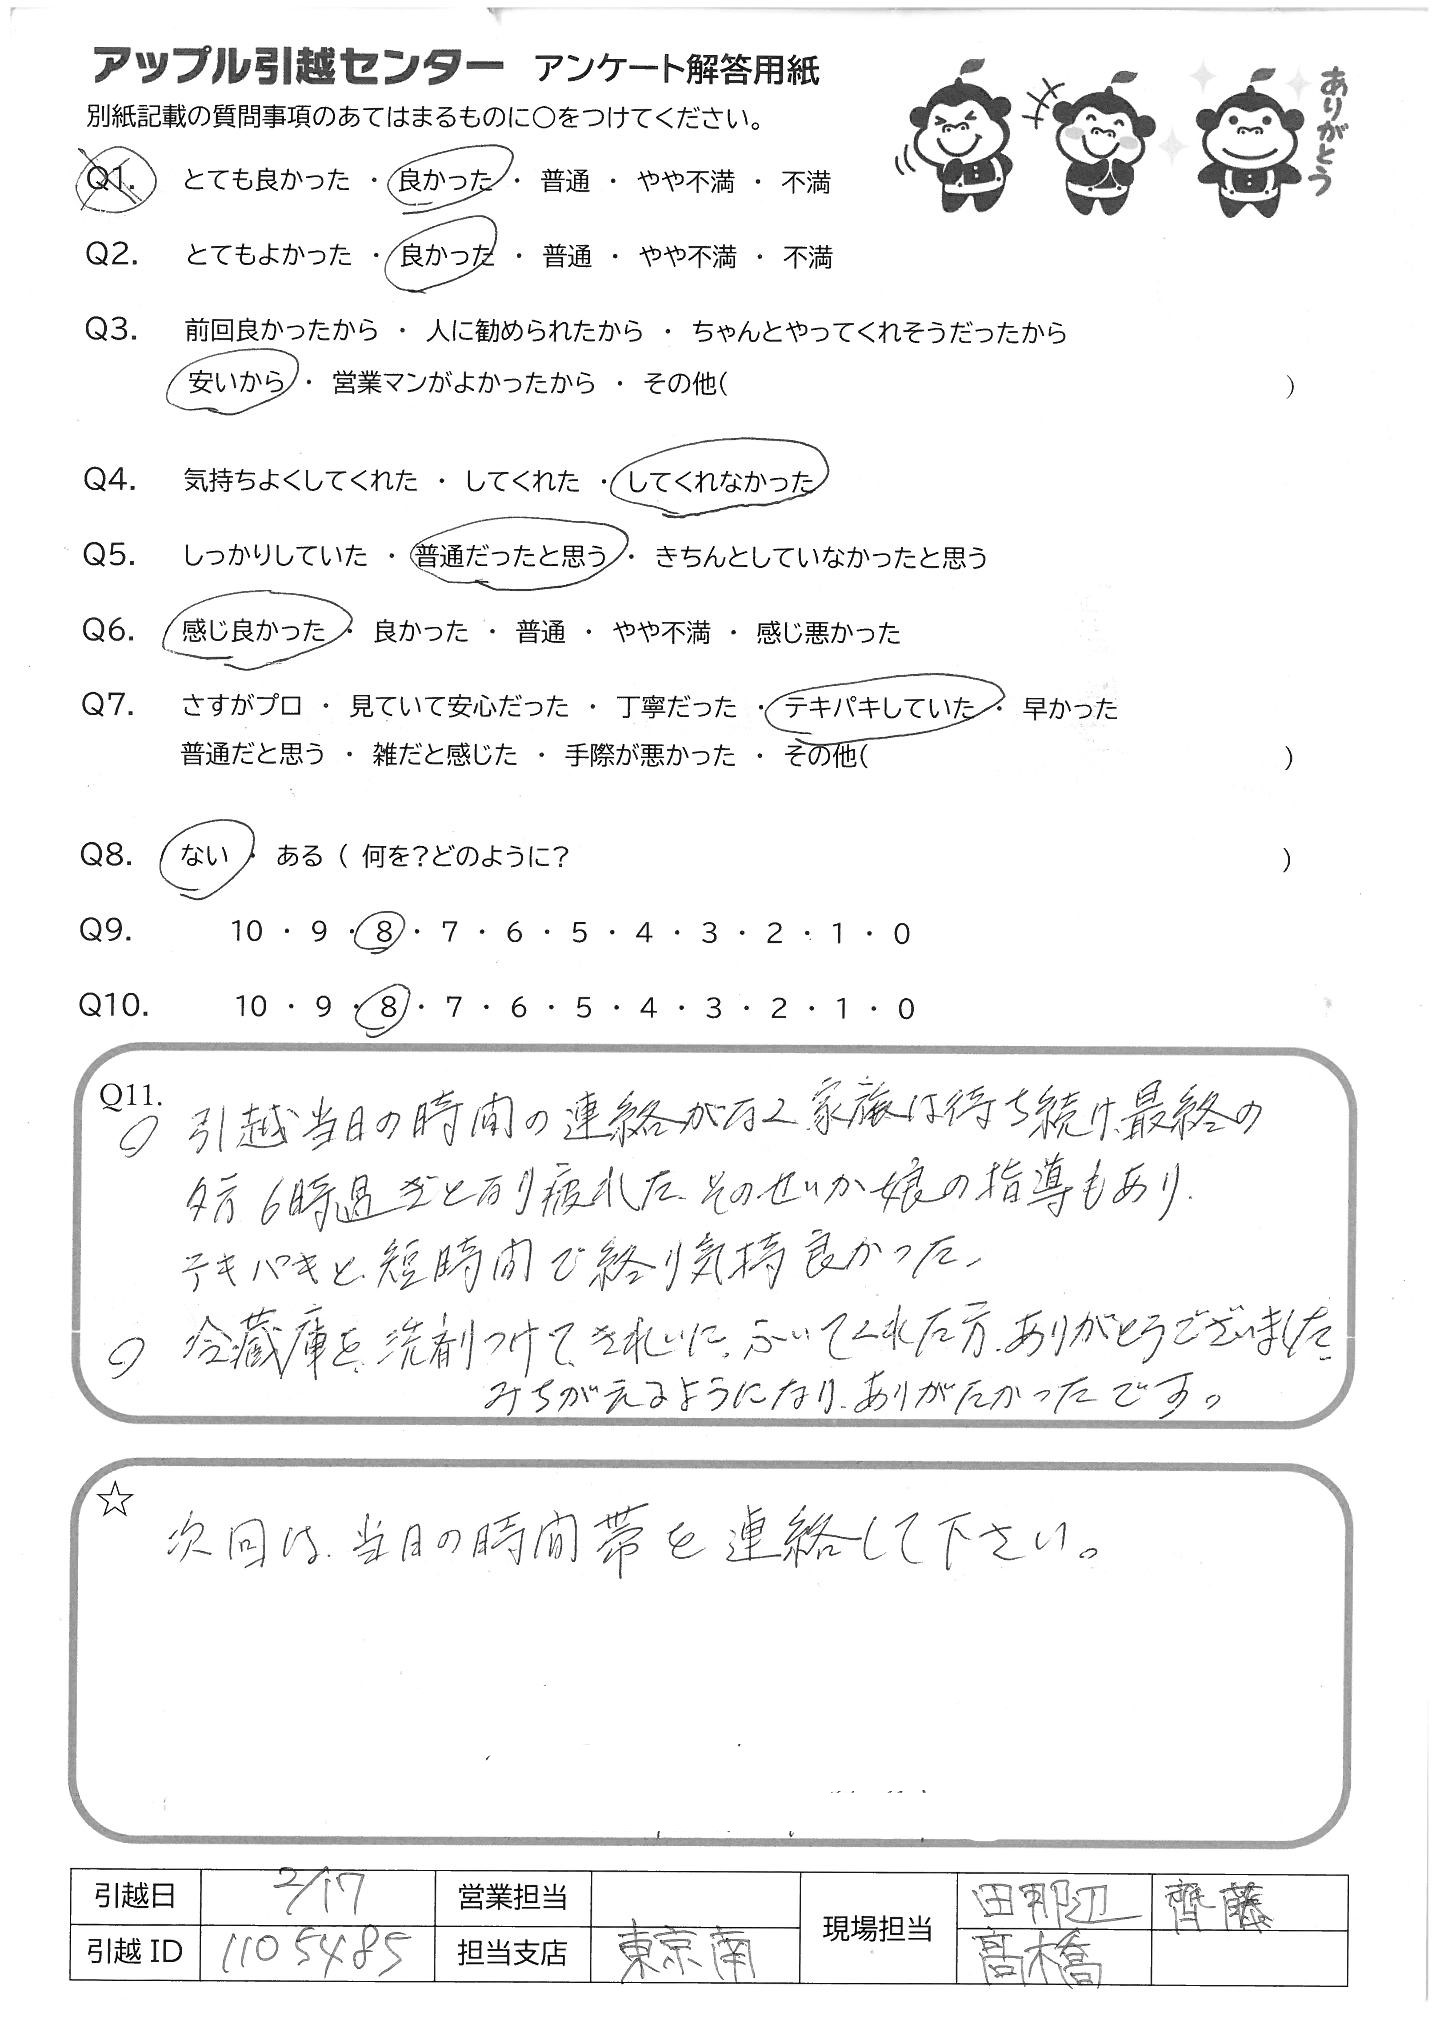 アップル引越センター アンケート解答用紙
別紙記載の質問事項のあてはまるものに〇をつけてください。
ありがとう
Q1. とても良かった ・ 良かった ・ 普通 ・ やや不満 ・ 不満
Q2. とてもよかった ・ 良かった ・ 普通 ・ やや不満 ・ 不満
Q3. 前回良かったから ・ 人に勧められたから ・ ちゃんとやってくれそうだったから
安いから ・ 営業マンがよかったから ・ その他( )
Q4. 気持ちよくしてくれた ・ してくれた ・ してくれなかった
Q5. しっかりしていた ・ 普通だったと思う ・ きちんとしていなかったと思う
Q6. 感じ良かった ・ 良かった ・ 普通 ・ やや不満 ・ 感じ悪かった
Q7. さすがプロ ・ 見ていて安心だった ・ 丁寧だった ・ テキパキしていた ・ 早かった
普通だと思う ・ 雑だと感じた ・ 手際が悪かった ・ その他( )
Q8. ない ・ ある ( 何を?どのように? )
Q9. 10 ・ 9 ・ 8 ・ 7 ・ 6 ・ 5 ・ 4 ・ 3 ・ 2 ・ 1 ・ 0
Q10. 10 ・ 9 ・ 8 ・ 7 ・ 6 ・ 5 ・ 4 ・ 3 ・ 2 ・ 1 ・ 0
Q11.
○ 引越当日の時間の連絡がなく、家族は待ち続け、最終の
夕方6時過ぎとなり疲れた、そのせいか娘の指導もあり、
テキパキと、短時間で終り気持良かった、
○ 冷蔵庫を、洗剤つけて、きれいに、ふいてくれた方、ありがとうございました、
みちがえるようになり、ありがたかったです。
☆
次回は、当日の時間帯を連絡して下さい。
引越日 2/17 営業担当 現場担当 田那辺 齊藤
引越 ID 1105485 担当支店 東京南 髙橋